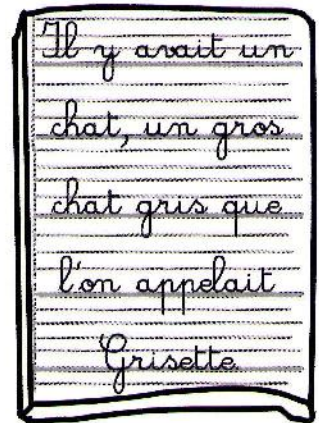 Il y avait un
chat, un gros
chat gris que
l'on appelait
Grisette